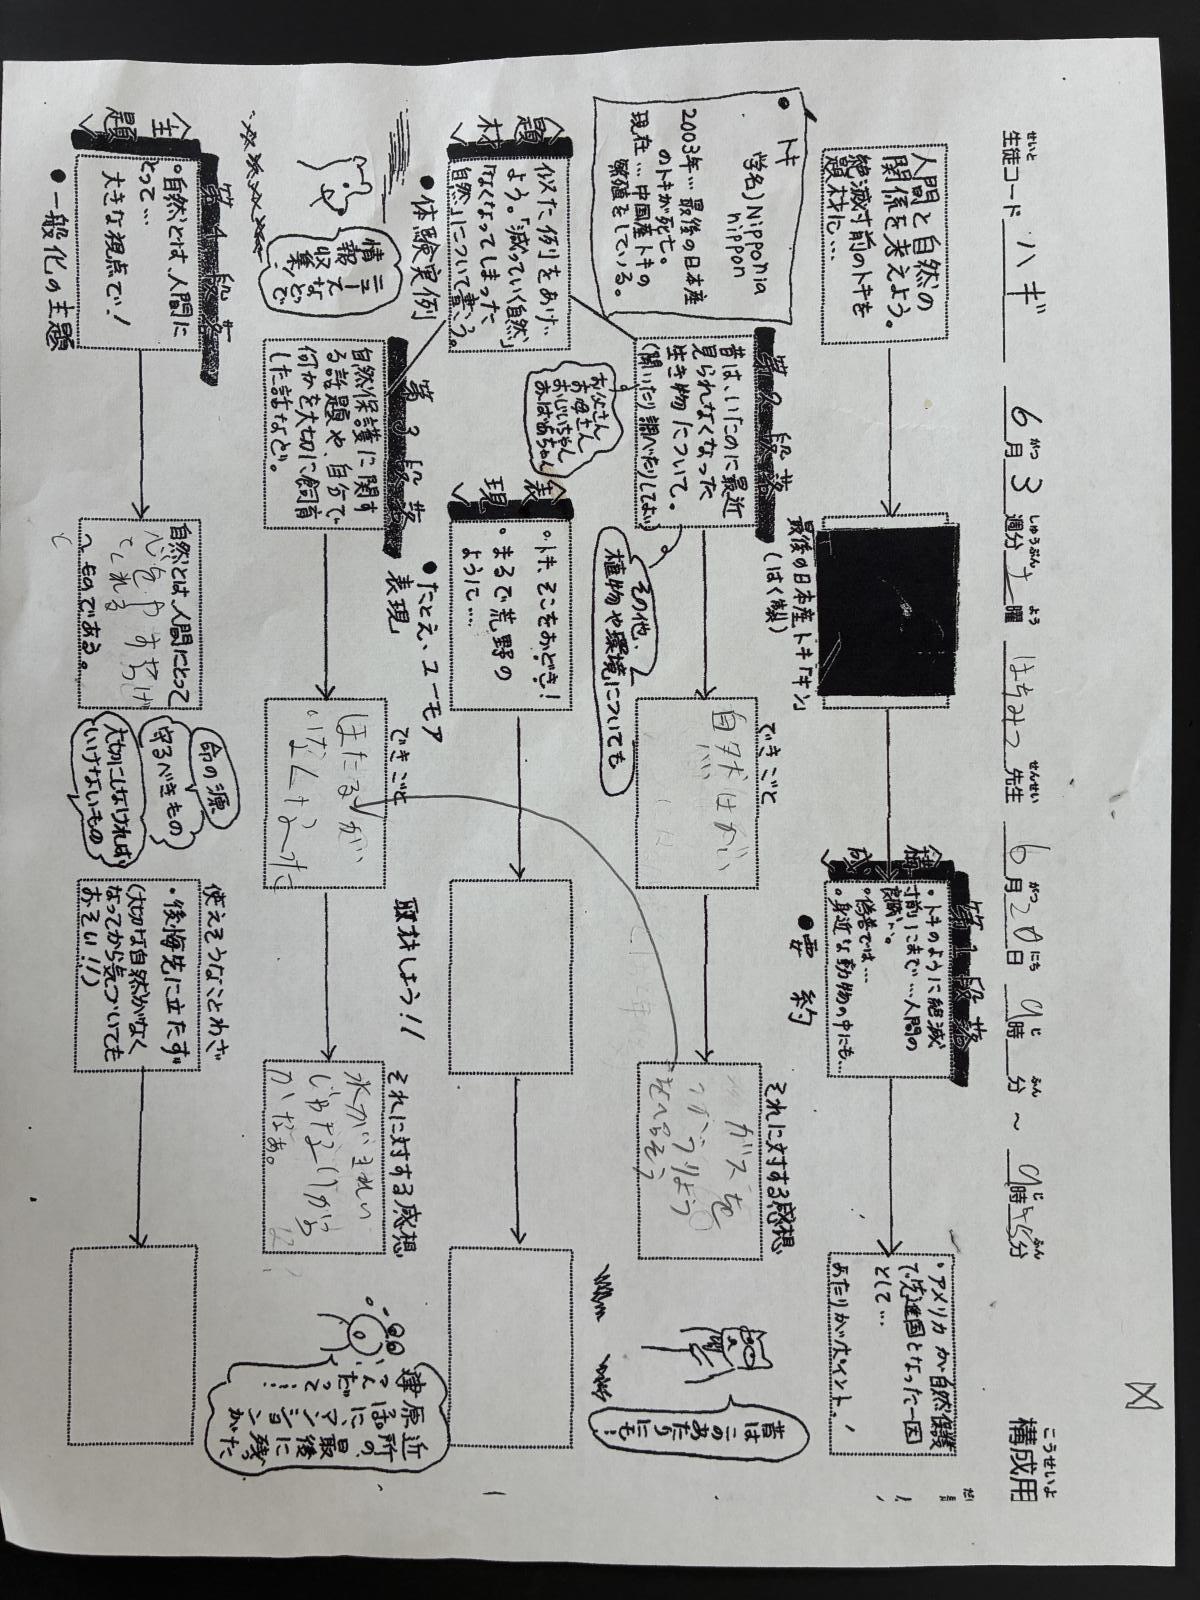 構成用
こうせいよ
せいと
生徒コード ハギ 6月3週分土曜 はちみつ先生 6月20日9時 分～9時45分
がつ しゅうぶん よう せんせい がつ にち じ ふん じ ふん
人間と自然の
関係を考えよう。
絶滅寸前のトキを
題材に…
最後の日本産トキ「キン」
(はく製)
〈構成〉
第1段落
・トキのように絶滅
寸前にまで…人間の
・偽善では…
・身近な動物の中にも…
●要約
・アメリカが自然保護
で先進国となった一因
として…
あたりがポイント!
●トキ
学名)Nipponia
nippon
2003年…最後の日本産
のトキが死亡。
現在…中国産トキの
繁殖をしている。
第2段落
昔は、いたのに最近
見られなくなった
生き物について。
(聞いたり調べたりしてよい)
お父さん
お母さん
おじいちゃん
おばあちゃん
その他、
植物や環境についても
できごと
自然はかい
それに対する感想
ガスを
つかうりょう
をへらそう
昔は
このあたりにも…
〈題材〉
似た例をあげ
よう。「減っていく自然」
「なくなってしまった
自然」について書こう。
●体験実例
〈表現〉
・トキ、そこをおどき!
・まるで荒野の
ように…
●たとえ、ユーモア
表現
第3段落
自然保護に関す
る話題や、自分で
何かを大切に飼育
した話など。
ニュースなどで
情報収集!
できごと
ほたるがい
いなくなった
取材しよう!!
それに対する感想
水がきれい
じゃないから
かなあ。
近所の、最後に残った
原っぱに、マンションが
建つんだって…
〈主題〉
第4段落
・自然とは、人間に
とって…
大きな視点で!
●一般化の主題
自然とは、人間にとって
心をやすらげ
てくれる
～ものである。
命の源
守るべきもの
大切にしなければ
いけないもの
使えそうなことわざ
・後悔先に立たず
(大切な自然がなく
なってから気づいても
おそい!!)